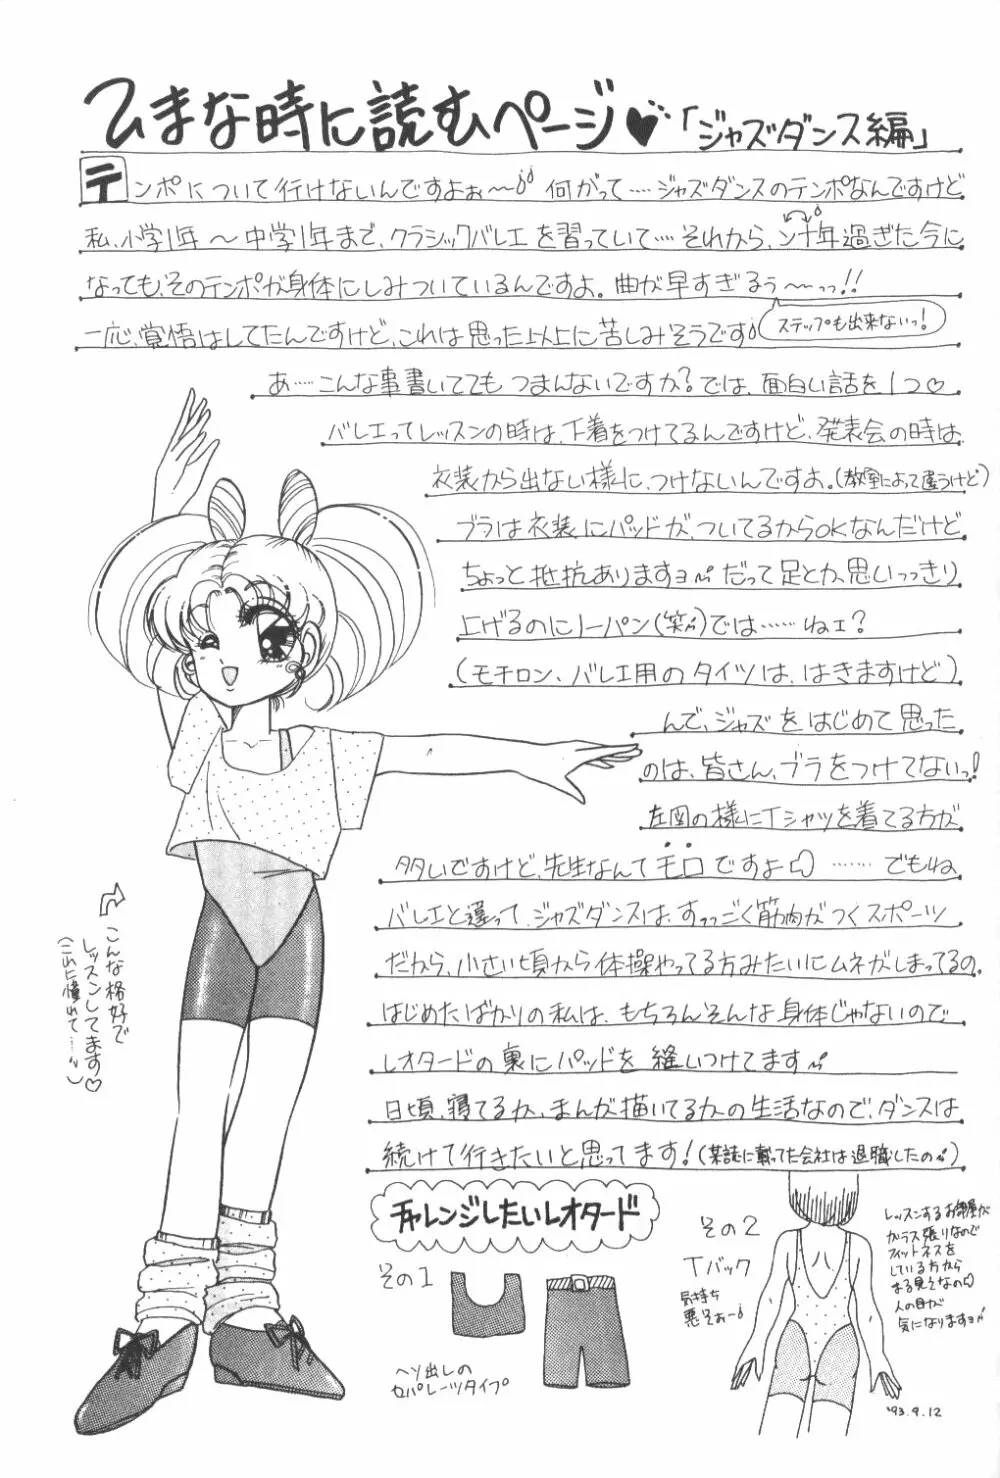 ひまな時に読むページ♥「ジャズダンス編」
テンポについて行けないんですよぉ〜 何がって……ジャズダンスのテンポなんですけど
私、小学1年〜中学1年まで、クラシックバレエを習っていて……それから、ン十年過ぎた今に
なっても、そのテンポが身体にしみついているんですよ。曲が早すぎるぅ〜っっ!!
一応、覚悟はしてたんですけど、これは思った以上に苦しみそうです
ステップも出来ないっ!
あ……こんな事書いててもつまんないですか?では、面白い話を1つ♡
バレエってレッスンの時は、下着をつけてるんですけど、発表会の時は、
衣装から出ない様に、つけないんですよ。(教室によって違うけど)
ブラは衣装にパッドが、ついてるからOKなんだけど
ちょっと抵抗ありますョ だって足とか、思いっっきり
上げるのにノーパン(笑)では……ねェ?
(モチロン、バレエ用のタイツは、はきますけど)
んで、ジャズをはじめて思った
のは、皆さん、ブラをつけてないっ!
左図の様にTシャツを着てる方が
多いですけど、先生なんてモロですよ……でもね
バレエと違って、ジャズダンスは、すっっごく筋肉がつくスポーツ
だから、小さい頃から体操やってる方みたいにムネがしまってるの。
はじめたばかりの私は、もちろんそんな身体じゃないので
レオタードの裏にパッドを縫いつけてます
日頃、寝てるか、まんが描いてるかの生活なので、ダンスは
続けて行きたいと思ってます!(某誌に載ってた会社は退職したの)
こんな格好で
レッスンしてます♡
(これに憧れて……)
チャレンジしたいレオタード
その1
ヘソ出しの
セパレーツタイプ
その2
Tバック
気持ち
悪そぉー
レッスンするお部屋が
ガラス張りなので
フィットネスを
している方から
まる見えなの
人の目が
気になりますョ
'93.9.12